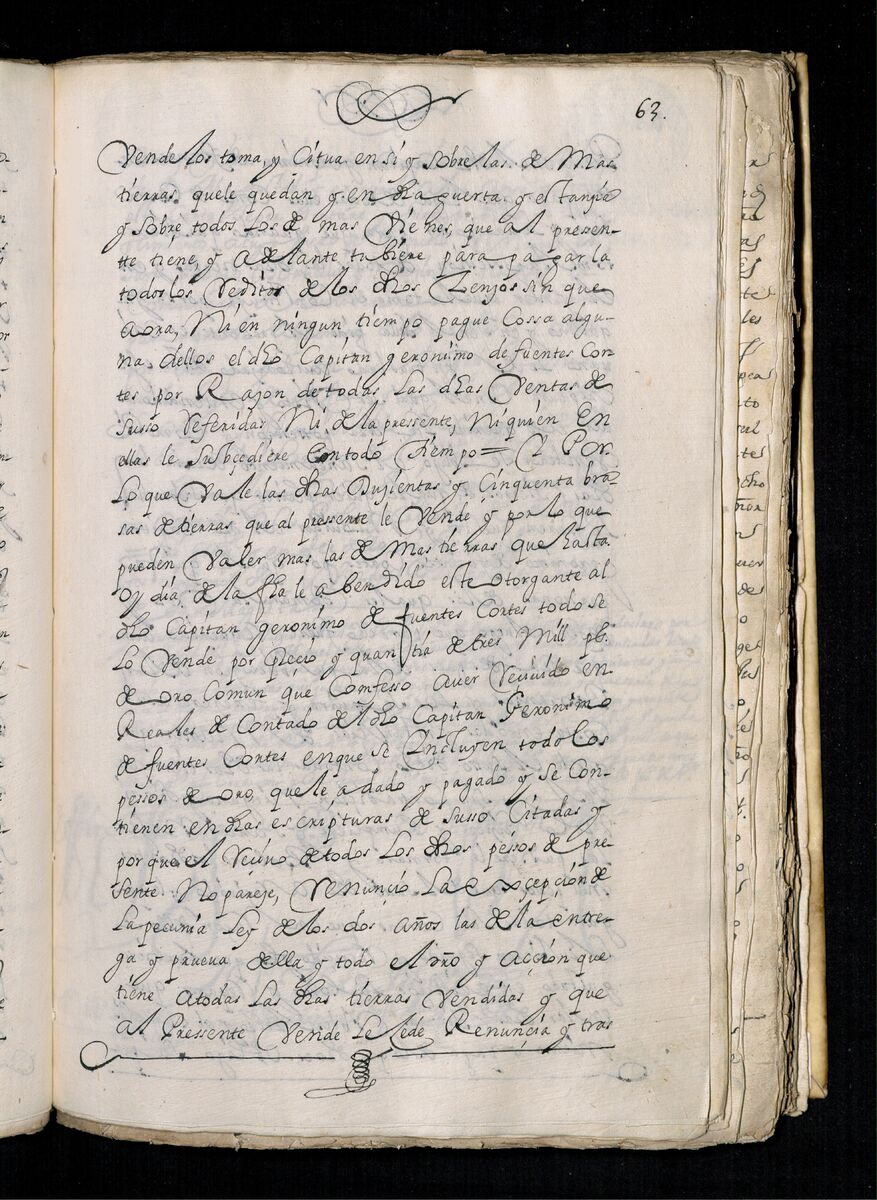 63.
Vende los toma, y Citua en si y sobre las de Mas
tierras quele quedan y en dha guerta y estançia
y sobre todos los de mas Vienes, que al presen-
te tiene, y adelante tubiere para pagar la
todos los Reditos de los dhos Zensos sin que
aora, Ni en ningun tiempo pague Cossa algu-
na dellos el dho Capitan geronimo de fuentes Cor-
tes por Rason de todas las dhas Ventas de
susso Referidas Ni de la pressente, Ni quien En
ellas le subçediere En todo Tiempo = Y Por
Lo que Vale las dhas Dusientas y Cinquenta bra-
sas de tierras que al pressente le Vende y por lo que
pueden Valer mas las de Mas tierras que hasta
oy dia de la fha le a bendido este otorgante al
dho Capitan geronimo de fuentes Cortes todo se
Lo Vende por preçio y quantia de tres Mill ps.
de oro Comun que Comfesso aver Reciuido en
Reales de Contado del dho Capitan Geronimo
de fuentes Cortes enque se Yncluyen todos los
pessos de oro, quele a dado y pagado y se Con-
tienen en dhas escripturas de susso Citadas y
por que el Reciuo de todos los dhos pessos de pre-
sente No pareje, Renunçio La exçepçion de
La pecunia Ley de los dos años las de la entre-
ga y prueva della y todo el dro y acçion que
tiene atodas las dhas tierras Vendidas y que
al Pressente Vende le sede Renunçia y tras